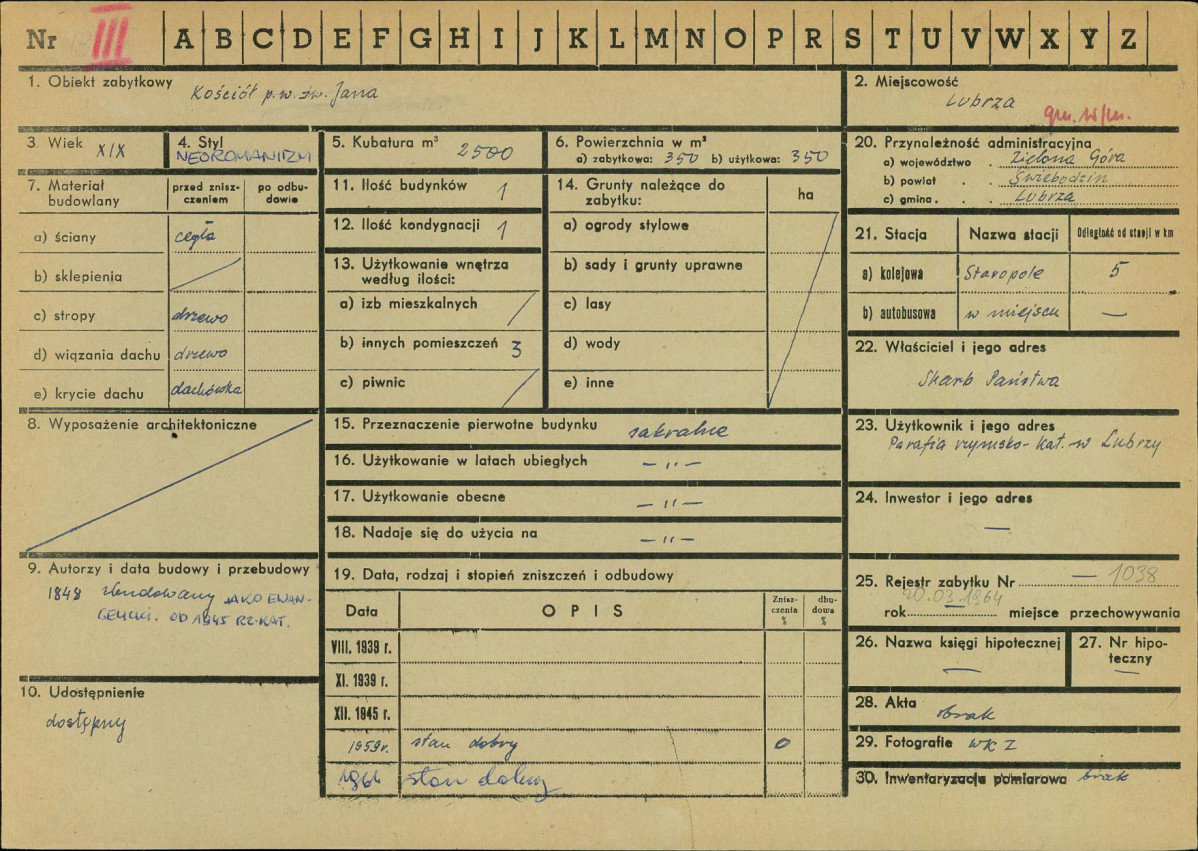 Nr III A B C D E F G H I J K L M N O P R S T U V W X Y Z
1. Obiekt zabytkowy Kościół p.w. św. Jana
2. Miejscowość
Lubrza
gm. w/m.
3. Wiek XIX
4. Styl
NEOROMANIZM
5. Kubatura m³ 2500
6. Powierzchnia w m²
a) zabytkowa: 350 b) użytkowa: 350
20. Przynależność administracyjna
a) województwo . Zielona Góra
b) powiat . . Świebodzin
c) gmina . . . Lubrza
7. Materiał
budowlany
przed znisz-
czeniem
po odbu-
dowie
a) ściany cegła
b) sklepienia
c) stropy drzewo
d) wiązania dachu drzewo
e) krycie dachu dachówka
11. Ilość budynków 1
12. Ilość kondygnacji 1
13. Użytkowanie wnętrza
według ilości:
a) izb mieszkalnych /
b) innych pomieszczeń 3
c) piwnic /
14. Grunty należące do
zabytku:
ha
a) ogrody stylowe
b) sady i grunty uprawne
c) lasy
d) wody
e) inne
21. Stacja Nazwa stacji Odległość od stacji w km
a) kolejowa Staropole 5
b) autobusowa w miejscu —
22. Właściciel i jego adres
Skarb Państwa
8. Wyposażenie architektoniczne
15. Przeznaczenie pierwotne budynku sakralne
16. Użytkowanie w latach ubiegłych — " —
17. Użytkowanie obecne — " —
18. Nadaje się do użycia na — " —
23. Użytkownik i jego adres
Parafia rzymsko-kat. w Lubrzy
24. Inwestor i jego adres
—
9. Autorzy i data budowy i przebudowy
1848 zbudowany JAKO EWAN-
GELICKI. OD 1945 RZ-KAT.
10. Udostępnienie
dostępny
19. Data, rodzaj i stopień zniszczeń i odbudowy
Data OPIS
Znisz-
czenia
%
dbu-
dowa
%
VIII. 1939 r.
XI. 1939 r.
XII. 1945 r.
1959r. stan dobry 0
1966 stan dobry
25. Rejestr zabytku Nr — 1038
20.03.1964
rok — miejsce przechowywania
26. Nazwa księgi hipotecznej
—
27. Nr hipo-
teczny
—
28. Akta brak
29. Fotografie WKZ
30. Inwentaryzacja pomiarowa brak